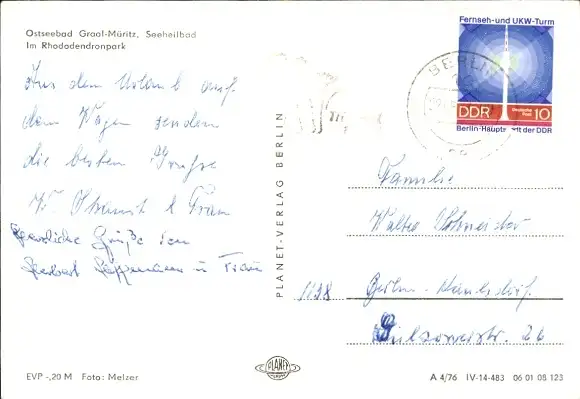 Ostseebad Graal-Müritz, Seeheilbad
Im Rhododendronpark
Aus dem Urlaub auf
dem Wagen senden
die besten Grüße
W. & Frau
Herzliche Grüße von
Herbert u Frau
PLANET-VERLAG BERLIN
Fernseh-und UKW-Turm
BERLIN
DDR Deutsche Post 10
Berlin-Haupts t der DDR
Familie
Walter Schneider
1138 Berlin-Kaulsdorf
26
PLANET
EVP -,20 M Foto: Melzer
A 4/76 IV-14-483 06 01 08 123